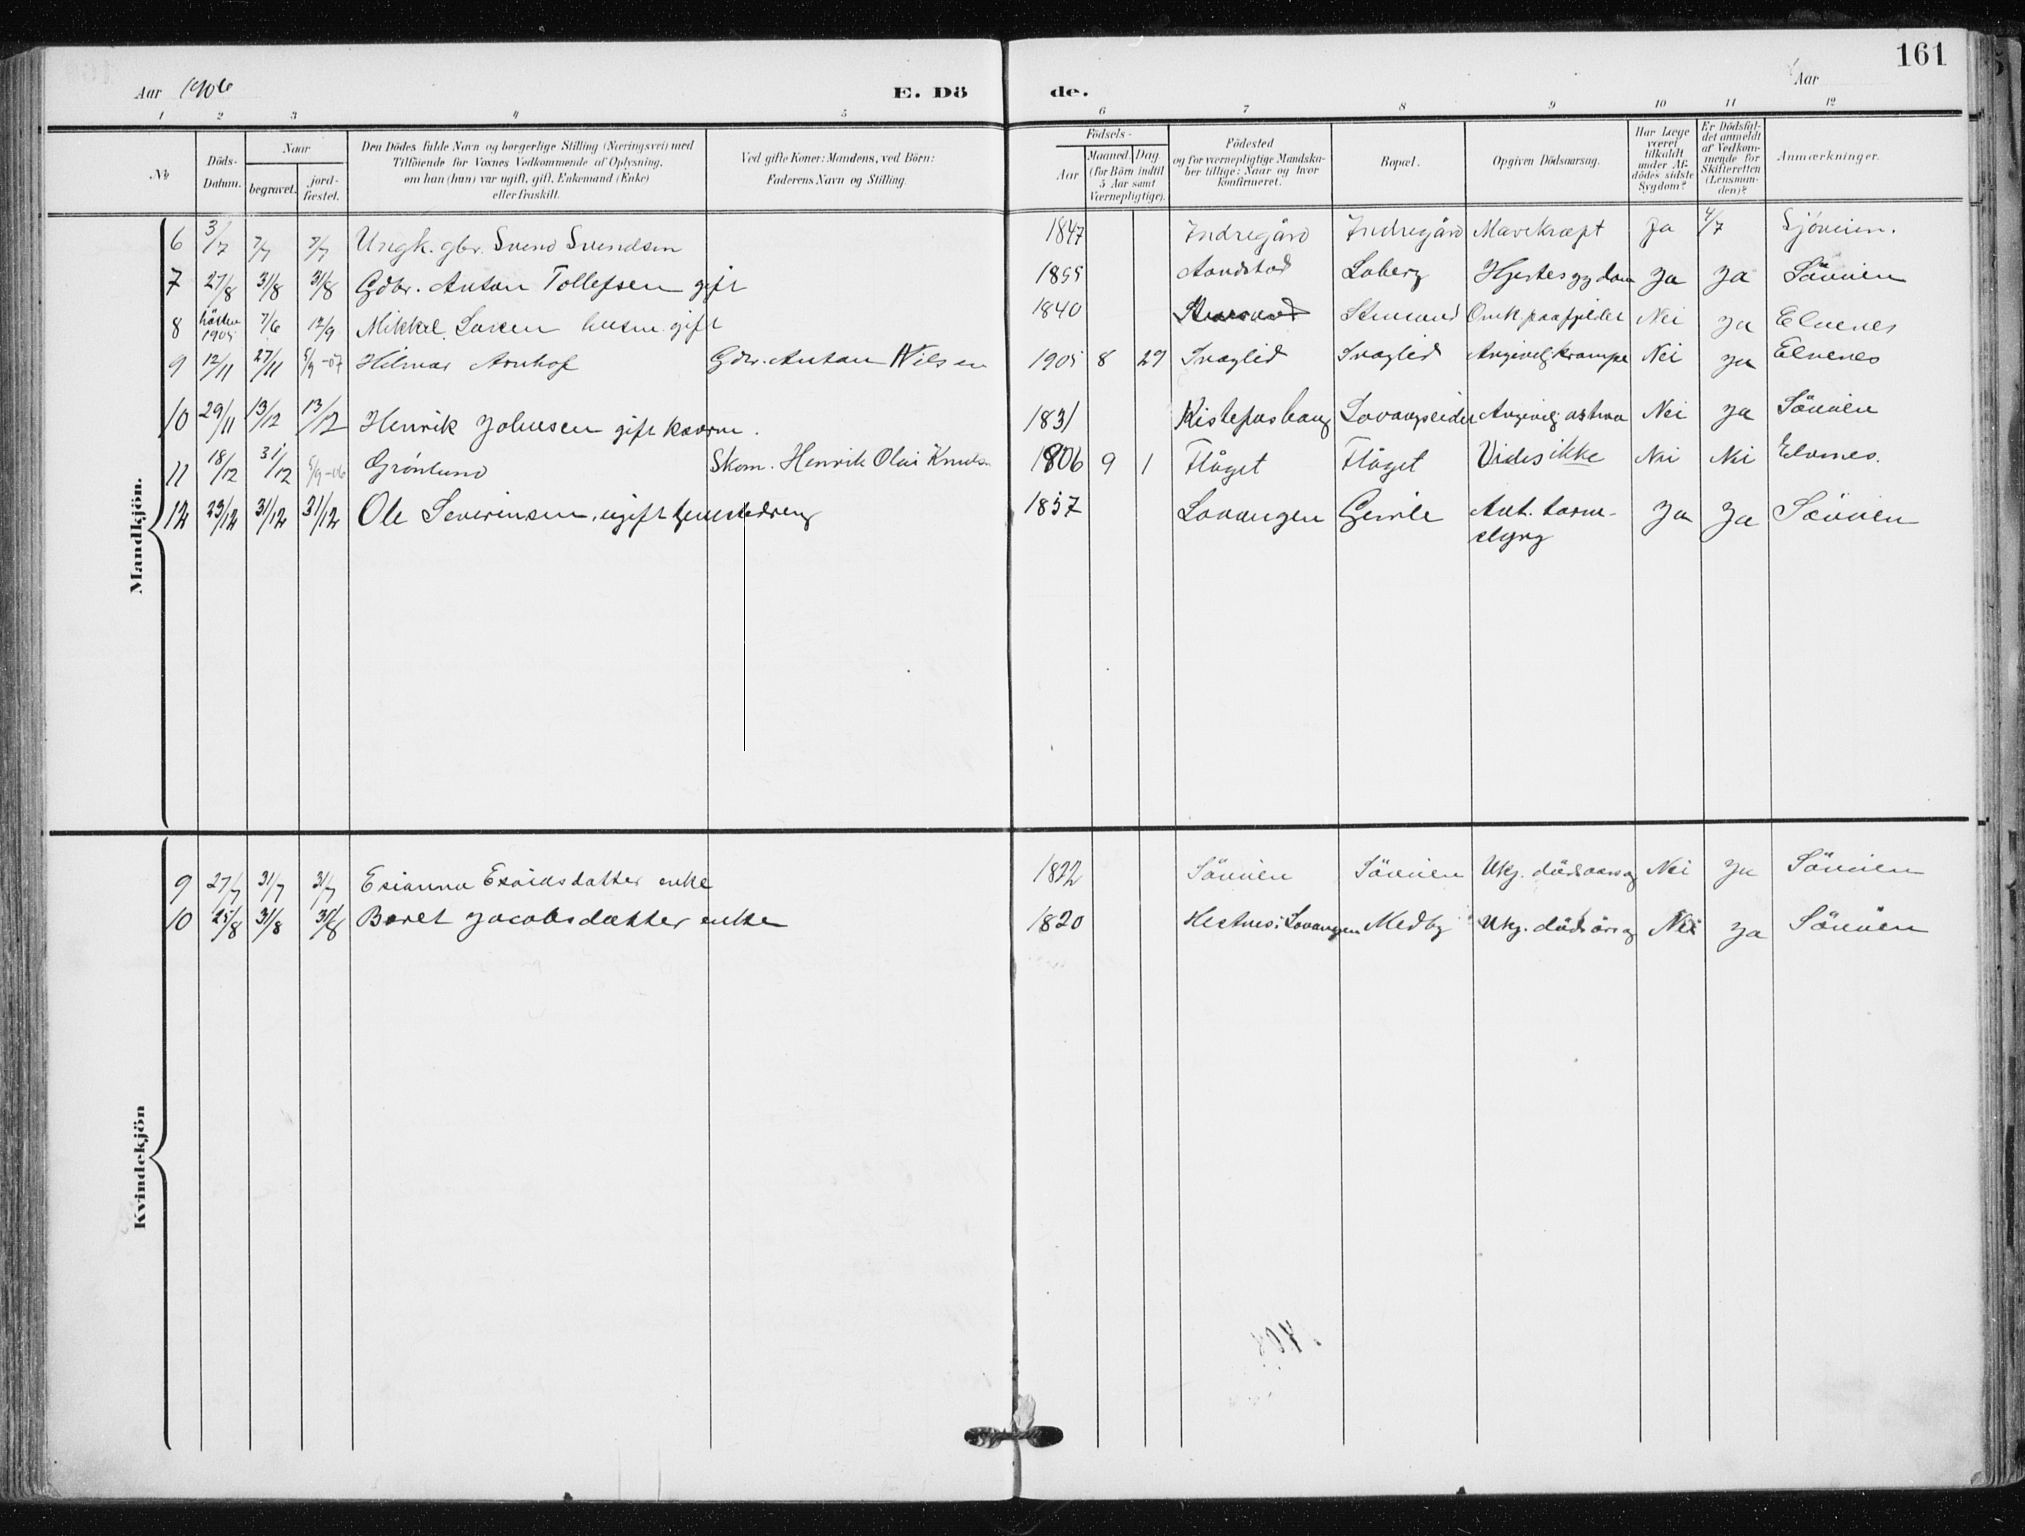 161
Aar 1906
E. Dö de.
Aar
1 2 3 4 5 6 7 8 9 10 11 12
No
Döds-Datum.
Naar
begravet.
jord-fæstet.
Den Dödes fulde Navn og borgerlige Stilling (Næringsvei) med
Tilföiende for Voxnes Vedkommende af Oplysning,
om han (hun) var ugift, gift, Enkemand (Enke)
eller fraskilt.
Ved gifte Koner: Mandens, ved Börn:
Faderens Navn og Stilling.
Födsels-
Aar
Maaned. Dag.
(for Börn indtil
5 Aar samt
Værnepligtige).
Födested
og for værnepligtige Mandska-
ber tillige: Naar og hvor
konfirmeret.
Bopæl.
Opgiven Dödsaarsag.
Har Læge
været
tilkaldt
under Af-
dödes sidste
Sygdom?
Er Dödsfal-
det anmeldt
af Vedkom-
mende for
Skifteretten
(Lensman-
den)?
Anmærkninger.
Mandkjön.
6 3/7 7/7 7/7 Ungk. gbr. Svend Svendsen 1847 Indregård Indregård Mavekræft Ja 4/7 Sjøveien.
7 27/8 31/8 31/8 Gdbr. Anton Tollefsen gift 1855 Aandstad Laberg Hjertesygdom Ja Ja Söveien
8 hösten 1905 7/6 12/9 Mikkel Larsen husm. gift 1840 Omk. paa fjeldet Nei Ja Elvenes
9 12/11 27/11 5/9-07 Hilmar Arnhof Gdbr. Anton Nilsen 1905 8 29 Snaglid Snaglid Angivelig krampe Nei Ja Elvenes
10 29/11 13/12 13/12 Henrik Johnsen gift kaarm. 1831 Kistefoshaug Lavangseidet Angivelig astma Nei Ja Söveien
11 18/12 31/12 5/9-06 Grønlund Skom. Henrik Olai Knuds. 1806 9 1 Flåget Flåget Vides ikke Nei Nei Elvenes.
12 23/12 31/12 31/12 Ole Severinsen, ugift tjenestedreng 1857 Lavangen Ant. tarm-
slyng Ja Ja Söveien
Kvindekjön
9 27/7 31/7 31/7 Esianna Esaiasdatter enke 1822 Söveien Söveien Ukj. dödsaarsag Nei Ja Söveien
10 25/8 31/8 31/8 Beret Jacobsdatter enke 1820 Hestnes i Lavangen Medby Ukj. dödsårsag Nei Ja Söveien